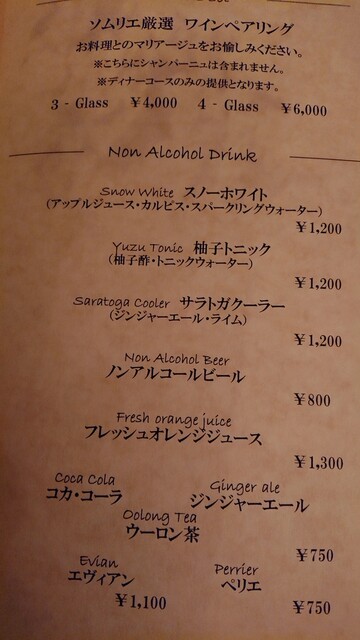 ソムリエ厳選 ワインペアリング
お料理とのマリアージュをお愉しみください。
※こちらにシャンパーニュは含まれません。
※ディナーコースのみの提供となります。
3 - Glass ¥4,000 4 - Glass ¥6,000
Non Alcohol Drink
Snow White スノーホワイト
(アップルジュース・カルピス・スパークリングウォーター)
¥1,200
Yuzu Tonic 柚子トニック
(柚子酢・トニックウォーター)
¥1,200
Saratoga Cooler サラトガクーラー
(ジンジャーエール・ライム)
¥1,200
Non Alcohol Beer
ノンアルコールビール
¥800
Fresh orange juice
フレッシュオレンジジュース
¥1,300
Coca Cola Ginger ale
コカ・コーラ ジンジャーエール
Oolong Tea
ウーロン茶
¥750
Evian Perrier
エヴィアン ペリエ
¥1,100 ¥750